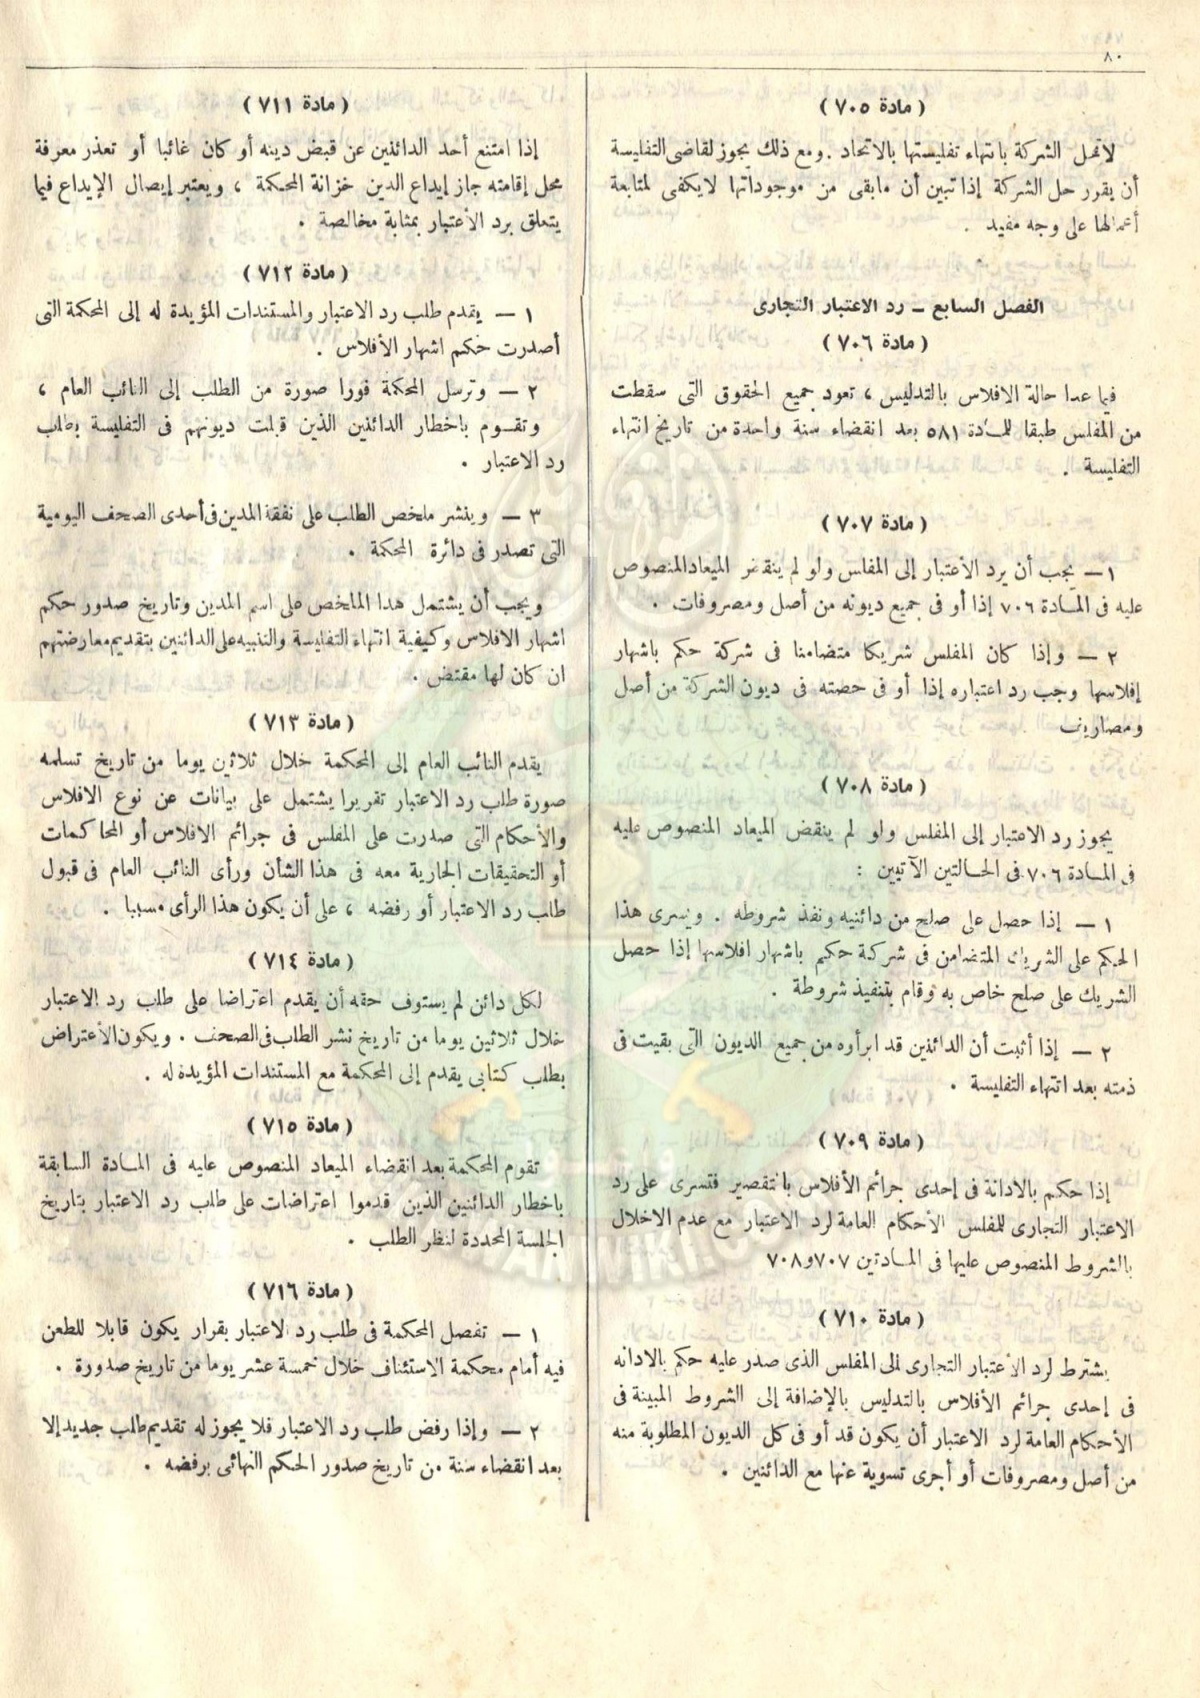 ٨٠
( مادة ٧٠٥ )
لاتحل الشركة بانتهاء تفليستها بالاتحاد . ومع ذلك يجوز لقاضى التفليسة
أن يقرر حل الشركة إذا تبين أن مابقى من موجوداتها لايكفى لمتابعة
أعمالها على وجه مفيد .
الفصل السابع – رد الاعتبار التجارى
( مادة ٧٠٦ )
فيما عدا حالة الافلاس بالتدليس ، تعود جميع الحقوق التى سقطت
من المفلس طبقا للمادة ٥٨١ بعد انقضاء سنة واحدة من تاريخ انتهاء
التفليسة .
( مادة ٧٠٧ )
١ – يجب أن يرد الأعتبار إلى المفلس ولو لم ينقض الميعاد المنصوص
عليه فى المادة ٧٠٦ إذا أو فى جميع ديونه من أصل ومصروفات .
٢ – وإذا كان المفلس شريكا متضامنا فى شركة حكم باشهار
إفلاسها وجب رد اعتباره إذا أو فى حصته فى ديون الشركة من أصل
ومصاريف
( مادة ٧٠٨ )
يجوز رد الاعتبار إلى المفلس ولو لم ينقض الميعاد المنصوص عليه
فى المادة ٧٠٦ فى الحالتين الآتيين :
١ – إذا حصل على صلح من دائنيه ونفذ شروطه . ويسرى هذا
الحكم على الشريك المتضامن فى شركة حكم باشهار افلاسها إذا حصل
الشريك على صلح خاص به وقام بتنفيذ شروطة .
٢ – إذا أثبت أن الدائنين قد ابرأوه من جميع الديون التى بقيت فى
ذمته بعد انتهاء التفليسة .
( مادة ٧٠٩ )
إذا حكم بالادانة فى إحدى جرائم الأفلاس بالتقصير فتسرى على رد
الاعتبار التجارى للمفلس الأحكام العامة لرد الاعتبار مع عدم الاخلال
بالشروط المنصوص عليها فى المادتين ٧٠٧ و٧٠٨
( مادة ٧١٠ )
يشترط لرد الأعتبار التجارى إلى المفلس الذى صدر عليه حكم بالادانه
فى إحدى جرائم الأفلاس بالتدليس بالإضافة إلى الشروط المبينة فى
الأحكام العامة لرد الاعتبار أن يكون قد أو فى كل الديون المطلوبة منه
من أصل ومصروفات أو أجرى تسوية عنها مع الدائنين .
( مادة ٧١١ )
إذا امتنع أحد الدائنين عن قبض دينه أو كان غائبا أو تعذر معرفة
محل إقامته جاز إيداع الدين خزانة المحكمة ، ويعتبر إيصال الإيداع فيما
يتعلق برد الأعتبار بمثابة مخالصة .
( مادة ٧١٢ )
١ – يقدم طلب رد الاعتبار والمستندات المؤيدة له إلى المحكمة التى
أصدرت حكم اشهار الأفلاس .
٢ – وترسل المحكمة فورا صورة من الطلب إلى النائب العام ،
وتقوم باخطار الدائنين الذين قبلت ديونهم فى التفليسة بطلب
رد الاعتبار .
٣ – وينشر ملخص الطلب على نفقة المدين فى أحدى الصحف اليومية
التى تصدر فى دائرة المحكمة .
ويجب أن يشتمل هذا الملخص على اسم المدين وتاريخ صدور حكم
اشهار الافلاس وكيفية انتهاء التفليسة والتنبيه على الدائنين بتقديم معارضتهم
ان كان لها مقتض .
( مادة ٧١٣ )
يقدم النائب العام إلى المحكمة خلال ثلاثين يوما من تاريخ تسلمه
صورة طلب رد الاعتبار تقريرا يشتمل على بيانات عن نوع الافلاس
والأحكام التى صدرت على المفلس فى جرائم الافلاس أو المحاكمات
أو التحقيقات الجارية معه فى هذا الشأن ورأى النائب العام فى قبول
طلب رد الاعتبار أو رفضه ، على أن يكون هذا الرأى مسببا .
( مادة ٧١٤ )
لكل دائن لم يستوف حقه أن يقدم اعتراضا على طلب رد الاعتبار
خلال ثلاثين يوما من تاريخ نشر الطلب فى الصحف . ويكون الأعتراض
بطلب كتابى يقدم إلى المحكمة مع المستندات المؤيدة له .
( مادة ٧١٥ )
تقوم المحكمة بعد انقضاء الميعاد المنصوص عليه فى المادة السابقة
باخطار الدائنين الذين قدموا اعتراضات على طلب رد الاعتبار بتاريخ
الجلسة المحددة لنظر الطلب .
( مادة ٧١٦ )
١ – تفصل المحكمة فى طلب رد الاعتبار بقرار يكون قابلا للطعن
فيه أمام محكمة الاستئناف خلال خمسة عشر يوما من تاريخ صدورة .
٢ – وإذا رفض طلب رد الاعتبار فلا يجوز له تقديم طلب جديد إلا
بعد انقضاء سنة من تاريخ صدور الحكم النهائى برفضه .